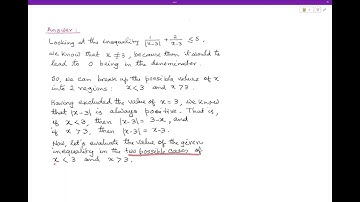 Answer:
Looking at the inequality 1/|x-3| + 2/x-3 ≤ 5.
We know that x ≠ 3, because then it would to
lead to 0 being in the denominator.
So, we can break up the possible value of x
into 2 regions: x < 3 and x > 3.
Having excluded the value of x = 3, we know
that |x-3| is always positive. That is,
if x < 3, then |x-3| = 3-x, and
if x > 3, then |x-3| = x-3.
Now, let's evaluate the value of the given
inequality in the two possible cases of
x < 3 and x > 3.